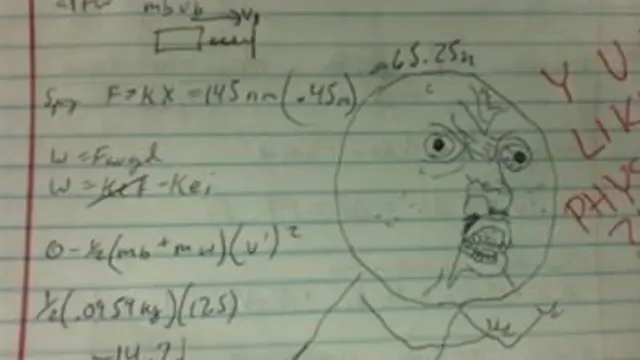 mb vb → v,
Spr F=KX = 145 nm (.45m) = 65.25n
W = Favgd
W = Kef - Kei
0 - ½(mb + mw)(v')²
½(.0959kg)(125)
-14.7J
Y U
LIK
PHYS
?